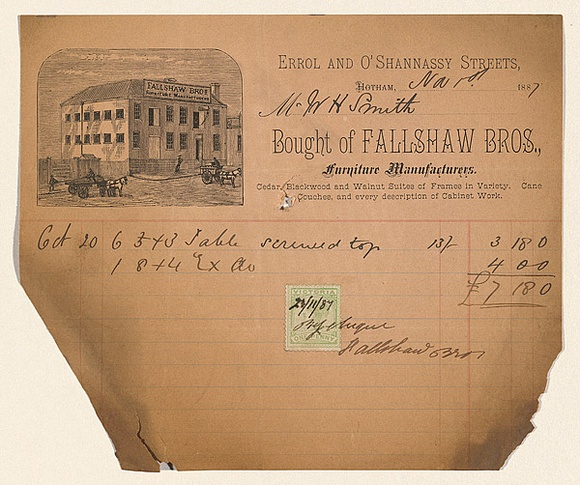 FALLSHAW BROS
FURNITURE MANUFACTURERS
ERROL AND O'SHANNASSY STREETS,
HOTHAM, Nov 1st 1887
Mr W H Smith
Bought of FALLSHAW BROS.,
Furniture Manufacturers.
Cedar, Blackwood and Walnut Suites of Frames in Variety. Cane
Couches, and every description of Cabinet Work.
Oct 20 6 3x3 Table screwed top 13/- 3 18 0
1 8x4 Ex Do 4 0 0
£7 18 0
VICTORIA
22/11/87
ONE PENNY
Fallshaw Bros